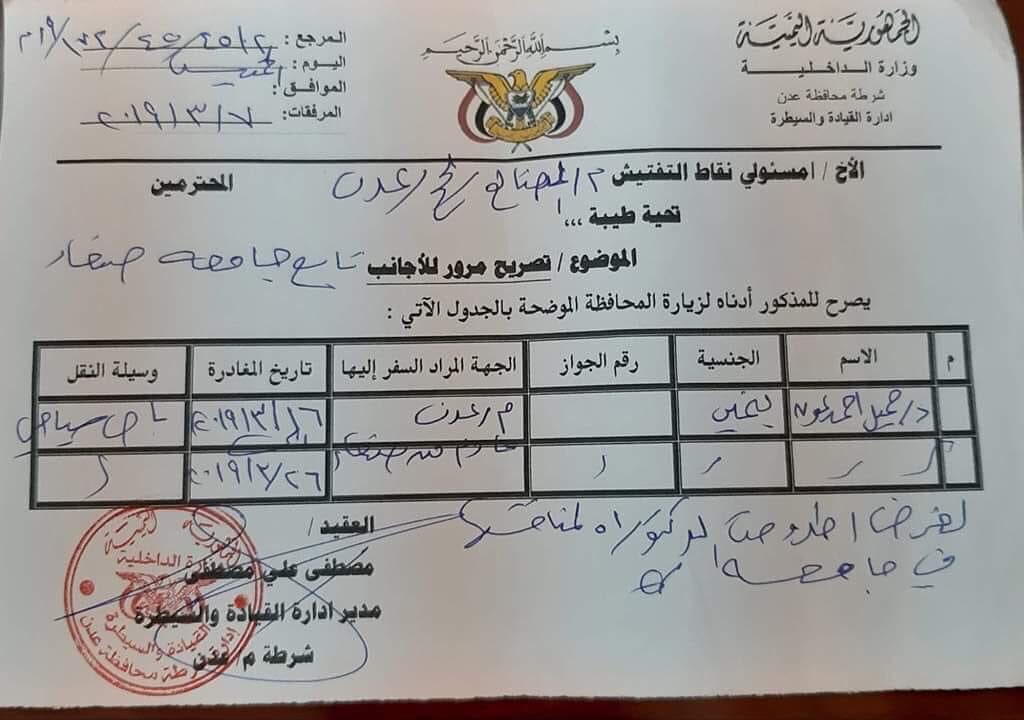 الجمهورية اليمنية
وزارة الداخلية
شرطة محافظة عدن
ادارة القيادة والسيطرة
بسم الله الرحمن الرحيم
المرجع :
اليوم : الخميس
الموافق :
المرفقات: ٢٠١٩/٣/٧
الأخ / مسئولي نقاط التفتيش م/ عدن المحترمين
تحية طيبة ...،
الموضوع / تصريح مرور للأجانب تابع جامعة صنعاء
يصرح للمذكور أدناه لزيارة المحافظة الموضحة بالجدول الآتي :
م الاسم الجنسية رقم الجواز الجهة المراد السفر إليها تاريخ المغادرة وسيلة النقل
د/ جميل احمد عون يمني م/ عدن ٢٠١٩/٣/١٦ باص سياحي
قادم من صنعاء
٢٠١٩/٣/٢٦
لغرض اطروحة دكتوراه لمناقشتها
في جامعة
العقيد /
مصطفى علي مصطفى
مدير ادارة القيادة والسيطرة
شرطة م/ عدن
الجمهورية اليمنية
وزارة الداخلية
القيادة والسيطرة
ادارة شرطة محافظة عدن